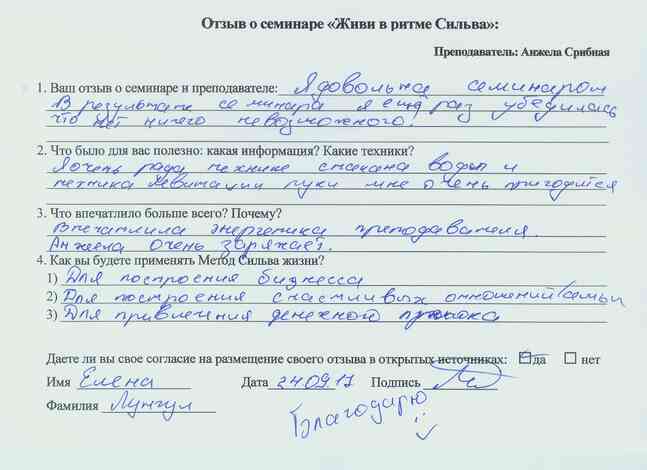 Отзыв о семинаре «Живи в ритме Сильва»:
Преподаватель: Анжела Срибная
1. Ваш отзыв о семинаре и преподавателе: Я довольна семинаром
В результате семинара я ещё раз убедилась
что нет ничего невозможного!
2. Что было для вас полезно: какая информация? Какие техники?
Я очень рада технике стакана воды и
техника левитации руки мне очень пригодится
3. Что впечатлило больше всего? Почему?
Впечатлила энергетика преподавателя.
Анжела очень заряжает.
4. Как вы будете применять Метод Сильва жизни?
1) Для построения бизнесса
2) Для построения счастливых отношений/семьи
3) Для привлечения денежного потока
Даете ли вы свое согласие на размещение своего отзыва в открытых источниках: да нет
Имя Елена Дата 24.09.17 Подпись
Фамилия Лунгул
Благодарю